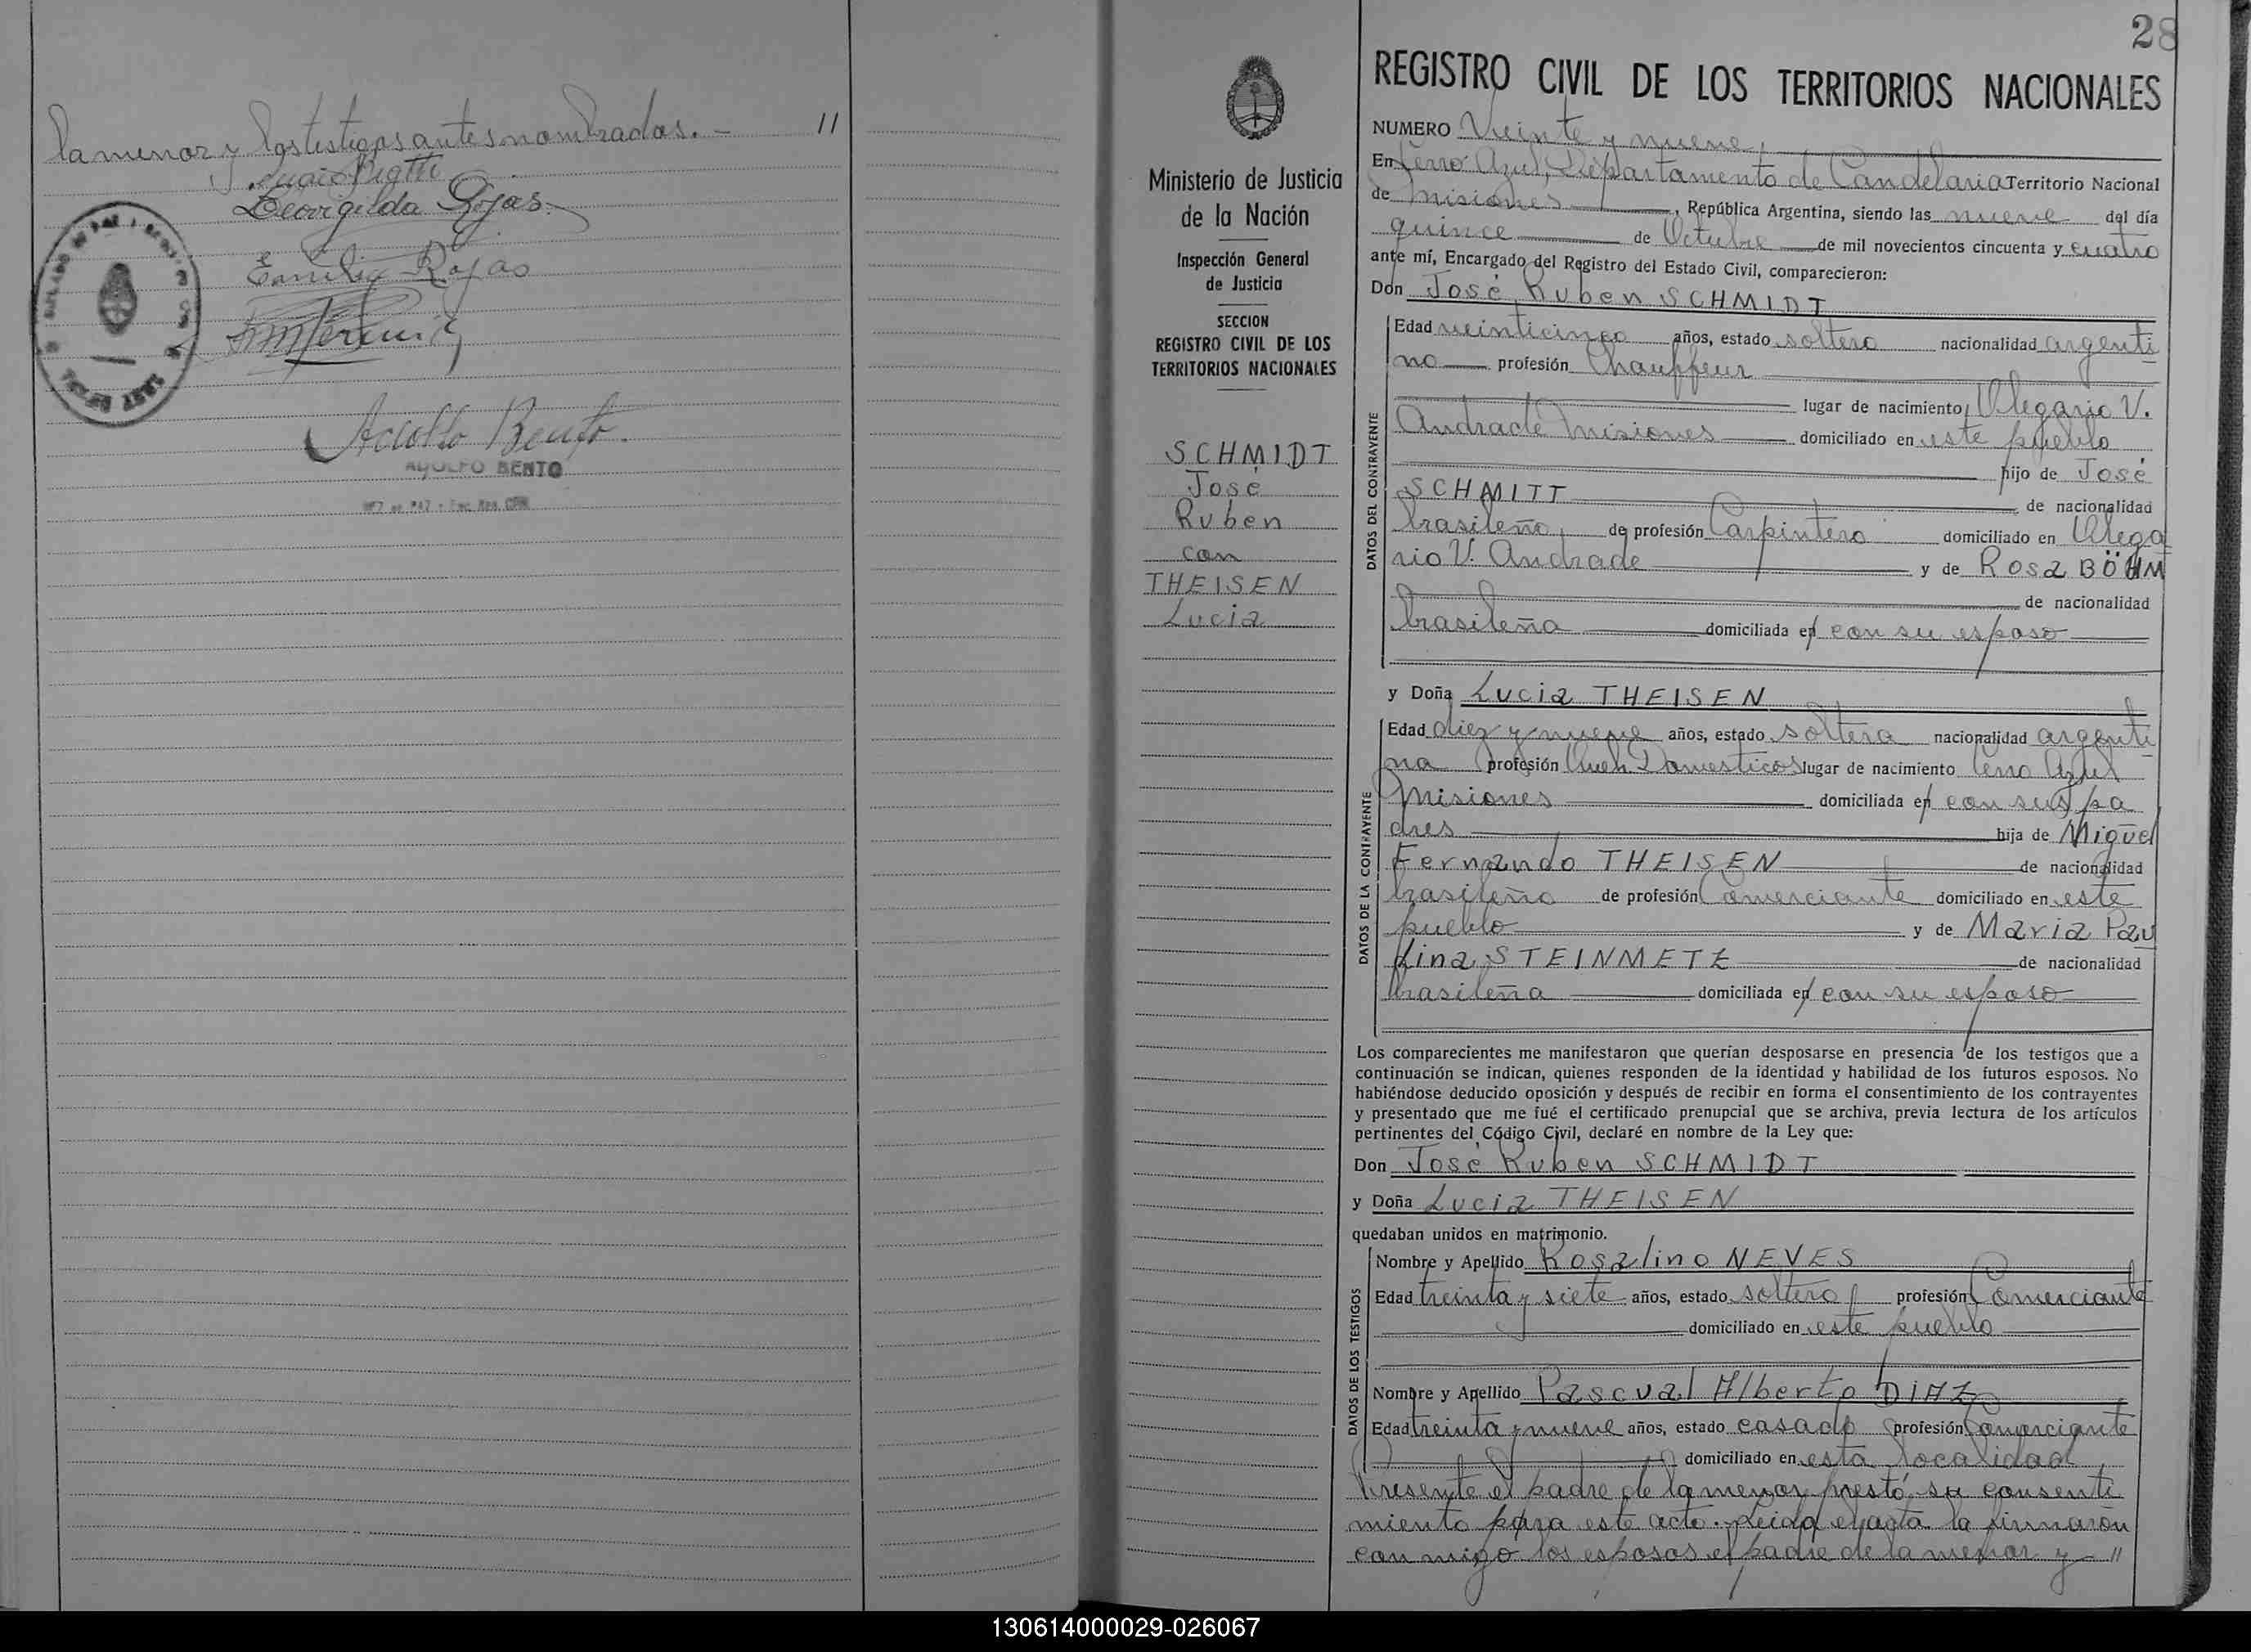 la menor y los testigos antes nombrados. — //
Deovigilda Rojas
Emilia Rojas
Adolfo Bento
ADOLFO BENTO
28
Ministerio de Justicia
de la Nación
Inspección General
de Justicia
SECCION
REGISTRO CIVIL DE LOS
TERRITORIOS NACIONALES
SCHMIDT
José
Ruben
con
THEISEN
Lucia
REGISTRO CIVIL DE LOS TERRITORIOS NACIONALES
NUMERO Veinte y nueve,
En Cerro Azul, Departamento de Candelaria Territorio Nacional
de Misiones, República Argentina, siendo las nueve del día
quince de Octubre de mil novecientos cincuenta y cuatro
ante mí, Encargado del Registro del Estado Civil, comparecieron:
Don José Ruben SCHMIDT
DATOS DEL CONTRAYENTE
Edad veinticinco años, estado soltero nacionalidad argenti
no profesión Chauffeur
lugar de nacimiento Olegario V.
Andrade Misiones domiciliado en este pueblo
hijo de José
SCHMITT de nacionalidad
brasileño, de profesión Carpintero domiciliado en Olega
rio V. Andrade y de Rosa BÖHM
de nacionalidad
brasileña domiciliada en con su esposo
y Doña Lucia THEISEN
DATOS DE LA CONTRAYENTE
Edad diez y nueve años, estado soltera nacionalidad argenti
na profesión Queh. Domesticos lugar de nacimiento Cerro Azul
Misiones domiciliada en con sus pa
dres hija de Miguel
Fernando THEISEN de nacionalidad
brasileño de profesión Comerciante domiciliado en este
pueblo y de Maria Pau
lina STEINMETZ de nacionalidad
brasileña domiciliada en con su esposo
Los comparecientes me manifestaron que querían desposarse en presencia de los testigos que a
continuación se indican, quienes responden de la identidad y habilidad de los futuros esposos. No
habiéndose deducido oposición y después de recibir en forma el consentimiento de los contrayentes
y presentado que me fué el certificado prenupcial que se archiva, previa lectura de los artículos
pertinentes del Código Civil, declaré en nombre de la Ley que:
Don José Ruben SCHMIDT
y Doña Lucia THEISEN
quedaban unidos en matrimonio.
DATOS DE LOS TESTIGOS
Nombre y Apellido Rosalino NEVES
Edad treinta y siete años, estado soltero profesión Comerciante
domiciliado en este pueblo
Nombre y Apellido Pascual Alberto DIAZ
Edad treinta y nueve años, estado casado profesión Comerciante
domiciliado en esta localidad
Presente el padre de la menor prestó su consenti
miento para este acto. Leida el acta la firmaron
con migo los esposos el padre de la menor y — //
130614000029-026067